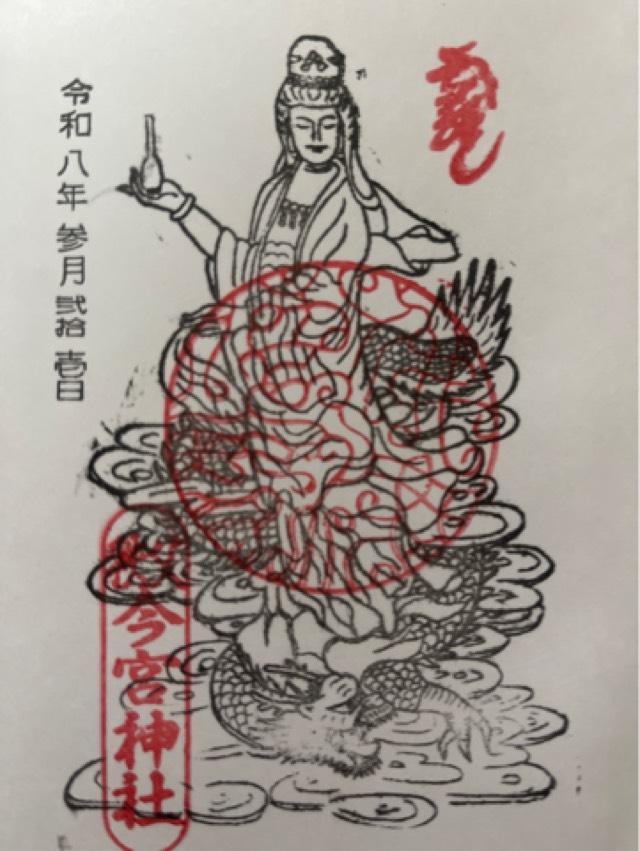 令和八年参月弐拾壱日
今宮神社